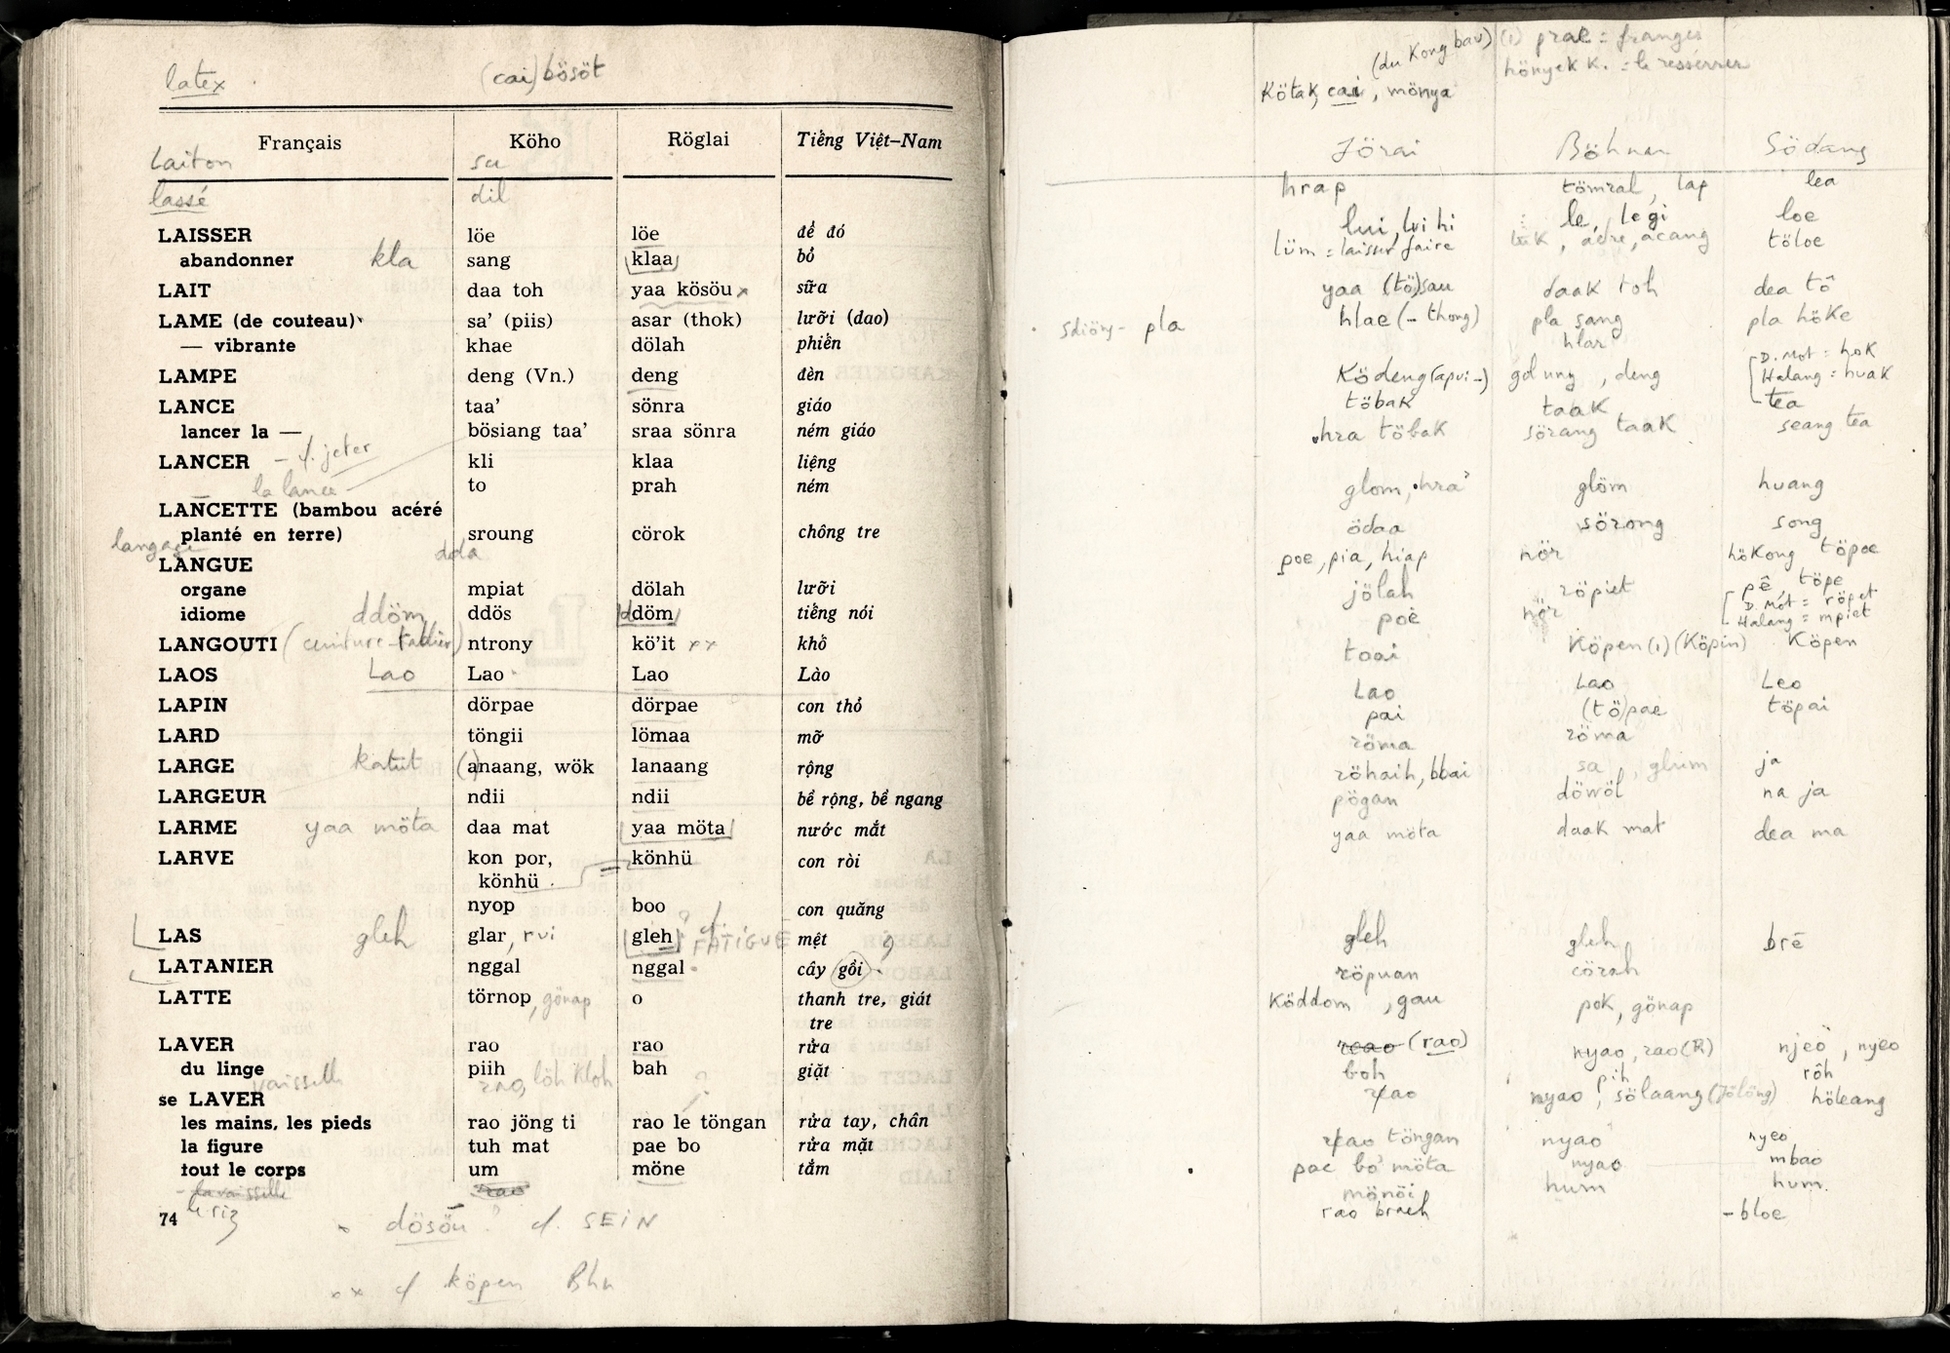 latex (cai) bösöt
Français Köho Röglai Tiếng Việt-Nam
laiton su
lassé dil
LAISSER löe löe để đó
abandonner kla sang klaa bỏ
LAIT daa toh yaa kösöu x sữa
LAME (de couteau) sa' (piis) asar (thok) lưỡi (dao)
— vibrante khae dölah phiến
LAMPE deng (Vn.) deng đèn
LANCE taa' sönra giáo
lancer la — bösiang taa' sraa sönra ném giáo
LANCER - cf. jeter kli klaa liệng
— la lance — to prah ném
LANCETTE (bambou acéré
planté en terre) sroung cörok chông tre
langage dda
LANGUE
organe mpiat dölah lưỡi
idiome ddöm ddös ddöm tiếng nói
LANGOUTI (ceinture-tablier) ntrony kö'it xx khố
LAOS Lao Lao Lao Lào
LAPIN dörpae dörpae con thỏ
LARD töngii lömaa mỡ
LARGE katut ( )anaang, wök lanaang rộng
LARGEUR ndii ndii bề rộng, bề ngang
LARME yaa möta daa mat yaa möta nước mắt
LARVE kon por, könhü con ròi
könhü
nyop boo con quăng
LAS gleh glar, rui gleh ? cf. FATIGUE mệt
LATANIER nggal nggal cây gồi ?
LATTE törnop, gönap o thanh tre, giát
tre
LAVER rao rao rửa
du linge piih bah giặt
vaisselle rao, löh kloh ?
se LAVER
les mains, les pieds rao jöng ti rao le töngan rửa tay, chân
la figure tuh mat pae bo rửa mặt
tout le corps um möne tắm
- la vaisselle rao
le riz
74
x dösöu ? cf. SEIN
xx cf köpen Bhn
(du Kong bau) (1) prae = franges
hönyek k. = le resserrer
Kötak cai, mönya
Jörai Böhnar Södang
hrap tömral, lap lea
lui, lui hi le, le gi loe
lüm = laisser faire adre, acang töloe
yaa (tö)sau daak toh dea tô
pla hlae (- thong) pla sang pla höke
hlar
Ködeng (apui -) , deng D. Mot = hok
Halang = huak
töbak taak tea
hra töbak sörang taak seang tea
glom, hra' glöm huang
ödaa sörong song
poe, pia, hiap nör hökong töpoe
jölah röpiet pê, töpe
poè nör D. Mot = röpet
Halang = mpiet
toai Köpen (1) (Köpin) Köpen
Lao Lao Leo
pai (tö)pae töpai
röma röma
röhaih, bbai sa, glum ja
pögan döwöl na ja
yaa möta daak mat dea ma
gleh gleh brē
röpuan cörah
Köddom, gau pok, gönap
reao (rao) nyao, rao (R) njeö, nyeo
boh pih rôh
rao nyao, sölaang (Jölöng) höleang
rao töngan nyao nyeo
pae bo' möta nyao mbao
mönöi hum hum.
rao braeh - bloe